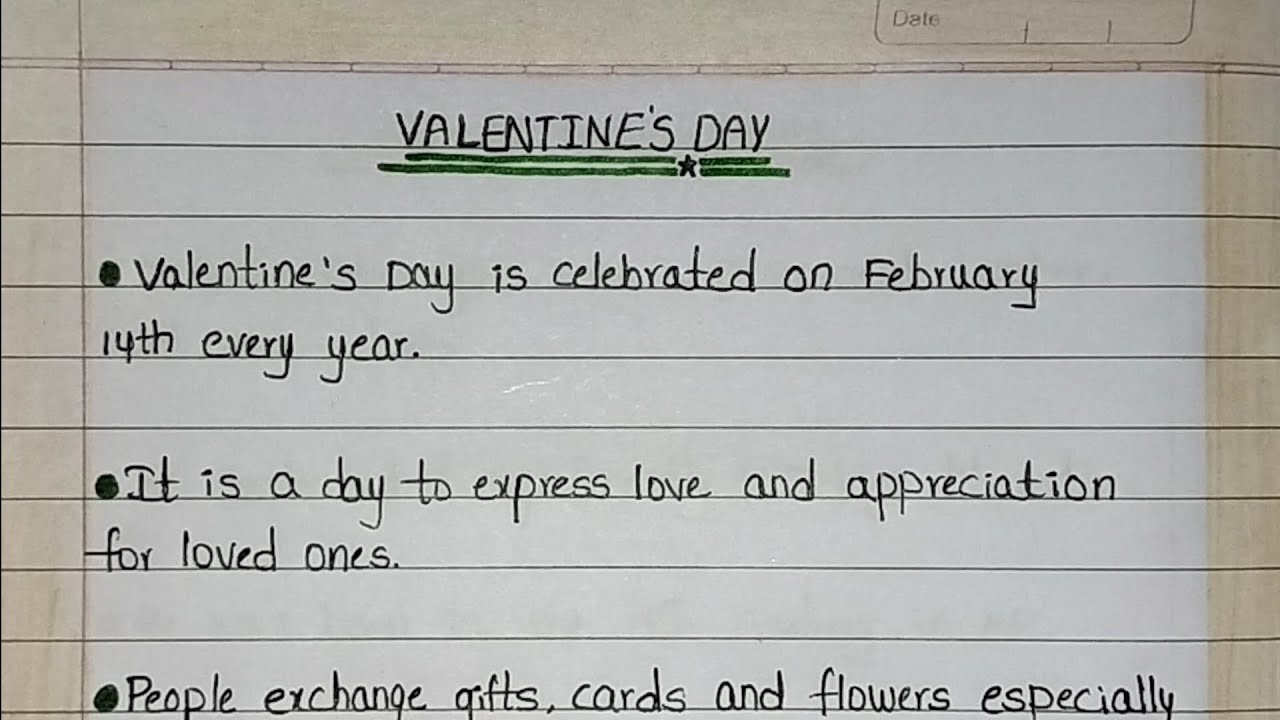 Date
VALENTINE'S DAY
● Valentine's Day is celebrated on February
14th every year.
● It is a day to express love and appreciation
for loved ones.
● People exchange gifts, cards and flowers especially